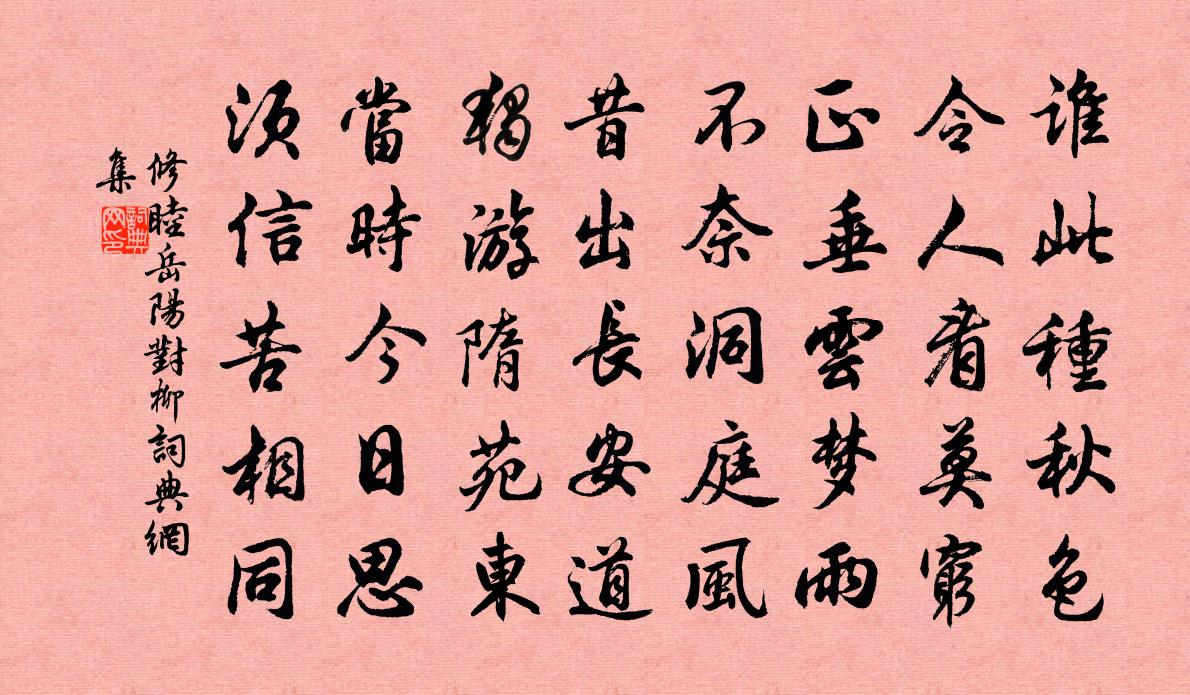 誰此種秋色
令人看莫窮
正垂雲梦雨
不奈洞庭風
昔出長安道
獨游隋苑東
當時今日思
須信苦相同
修睦岳陽對柳詞典網
集
詞典網印